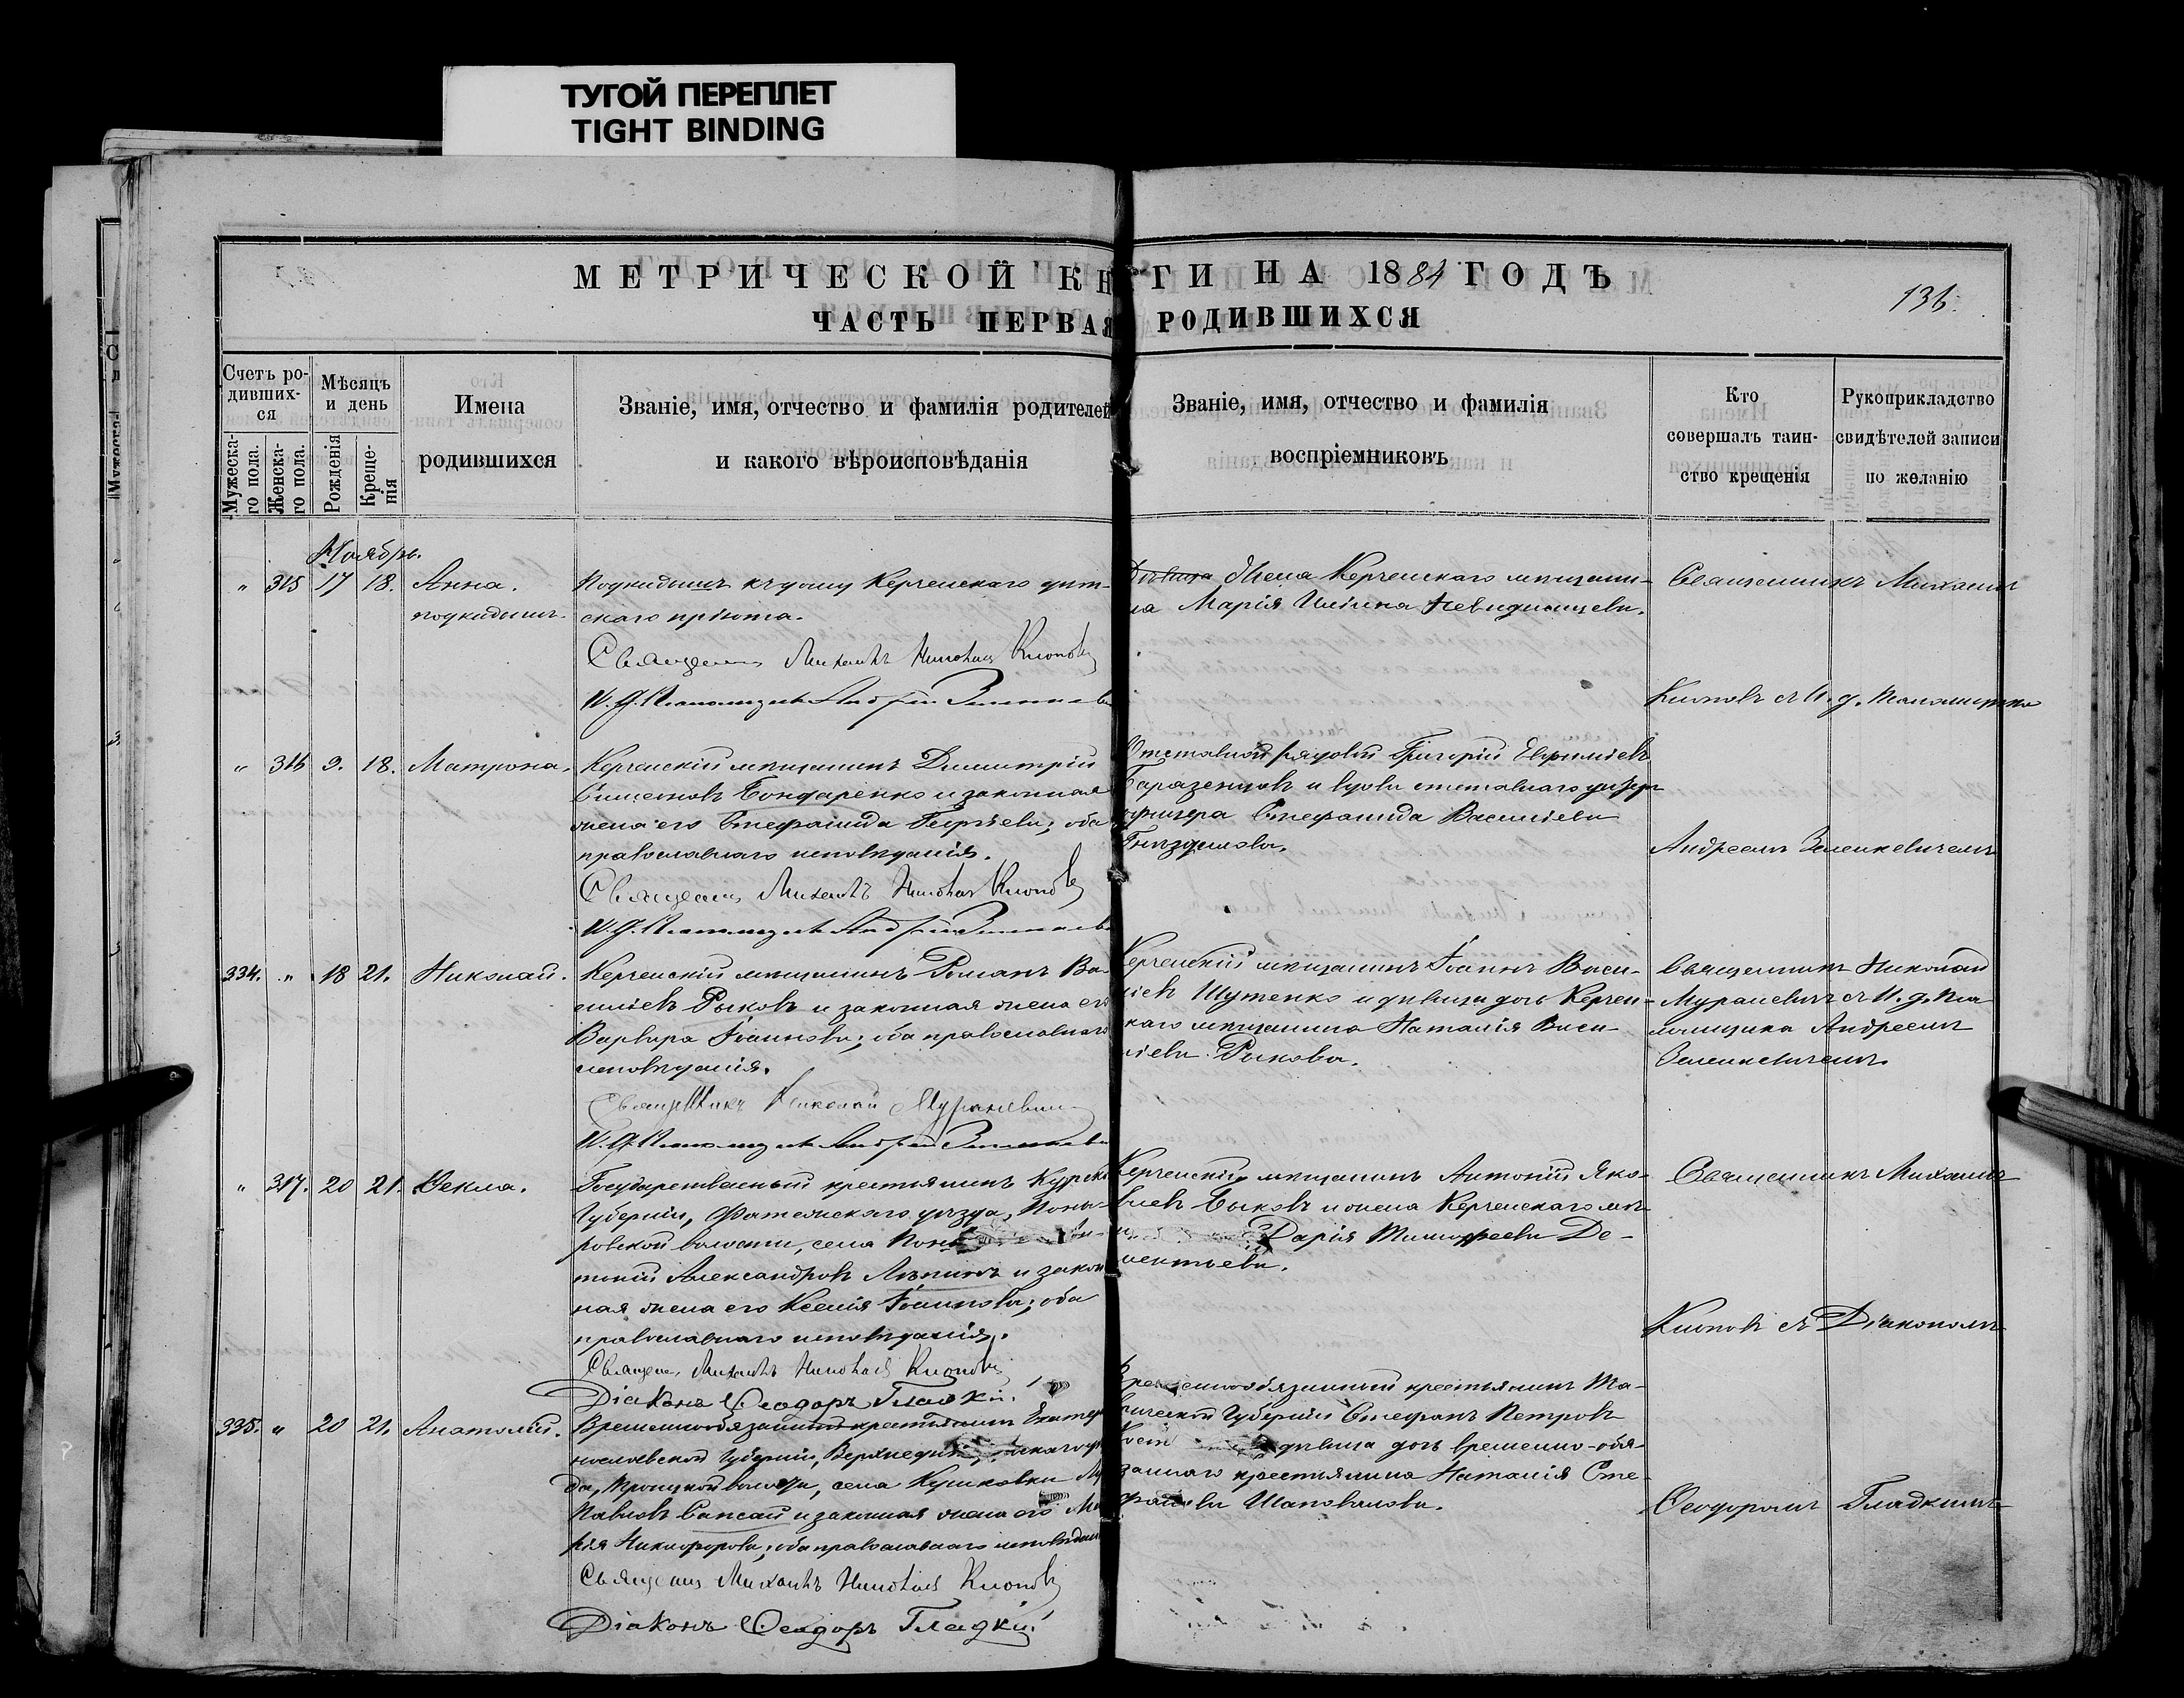 ТУГОЙ ПЕРЕПЛЕТ
TIGHT BINDING
МЕТРИЧЕСКОЙ КН ГИ НА 1884 ГОДЪ
136.
ЧАСТЬ ПЕРВАЯ РОДИВШИХСЯ
Счетъ ро-
дивших-
ся
Мужеска-
го пола.
Женска-
го пола.
Мѣсяцъ
и день
Рожденія
Креще-
нія
Имена
родившихся
Званіе, имя, отчество и фамилія родителей
и какого вѣроисповѣданія
Званіе, имя, отчество и фамилія
воспріемниковъ
Кто
совершалъ таин-
ство крещенія
Рукоприкладство
свидѣтелей записи
по желанію
Ноябрь.
" 315 17 18. Анна.
подкидышъ.
Подкидышъ къ дому Керченскаго дѣт-
скаго пріюта.
Священникъ Михаилъ Клоповъ
И. д. Псаломщика Андрей
жена Керченскаго мѣщани-
на Марія
Священникъ Михаилъ
Клоповъ съ И. д. Псаломщика
" 316 9. 18. Матрона.
Керченскій мѣщанинъ Димитрій
Симеоновъ Бондаренко и законная
жена его Стефанида Георгіева; оба
православнаго исповѣданія.
Священникъ Михаилъ Клоповъ
И. д. Псаломщика Андрей
Отставной рядовой Григорій Евфиміевъ
и вдова отставного унтеръ
офицера Стефанида Василіева
Гнѣздилова.
Андреемъ Зеленкевичемъ
334. " 18 21. Николай.
Керченскій мѣщанинъ Романъ Ва-
силіевъ Рыковъ и законная жена его
Варвара Іоаннова; оба православнаго
исповѣданія.
Священникъ Николай Мураневичъ
И. д. Псаломщика Андрей
Керченскій мѣщанинъ Іоаннъ Васи-
ліевъ Шутенко и дѣвица дочь Керчен-
скаго мѣщанина Наталія Васи-
ліева Рыкова.
Священникъ Николай
Мураневичъ съ И. д. Пса
ломщика Андреемъ
Зеленкевичемъ.
" 317. 20 21. Ѳекла.
Государственный крестьянинъ Курской
Губерніи, Фатежскаго уѣзда, Поны-
ровской волости, села
тоній Александровъ Лѣпинъ и закон
ная жена его Ксенія Іоаннова; оба
православнаго исповѣданія.
Священ. Михаилъ Клоповъ
Діаконъ Ѳеодоръ Гладкій
Керченскій мѣщанинъ Антоній Яко-
влевъ Быковъ и жена Керченскаго мѣ-
Дарія Тимофеева Де-
ментьева.
Священникъ Михаилъ
Клоповъ съ Діакономъ
335. " 20 21. Анатолій.
Временнообязанный крестьянинъ Екатери
нославской Губерніи,
да, Троицкой волости, села
Павловъ Сапсай и законная жена его Ма
рія Никифорова; оба православнаго исповѣдан
Священникъ Михаилъ Клоповъ
Діаконъ Ѳеодоръ Гладкій
Временнообязанный крестьянинъ Та-
врической Губерніи Стефанъ Петровъ
дѣвица дочь временно-обя-
заннаго крестьянина Наталія Сте-
фанова Шаповалова.
Ѳеодоромъ Гладкимъ